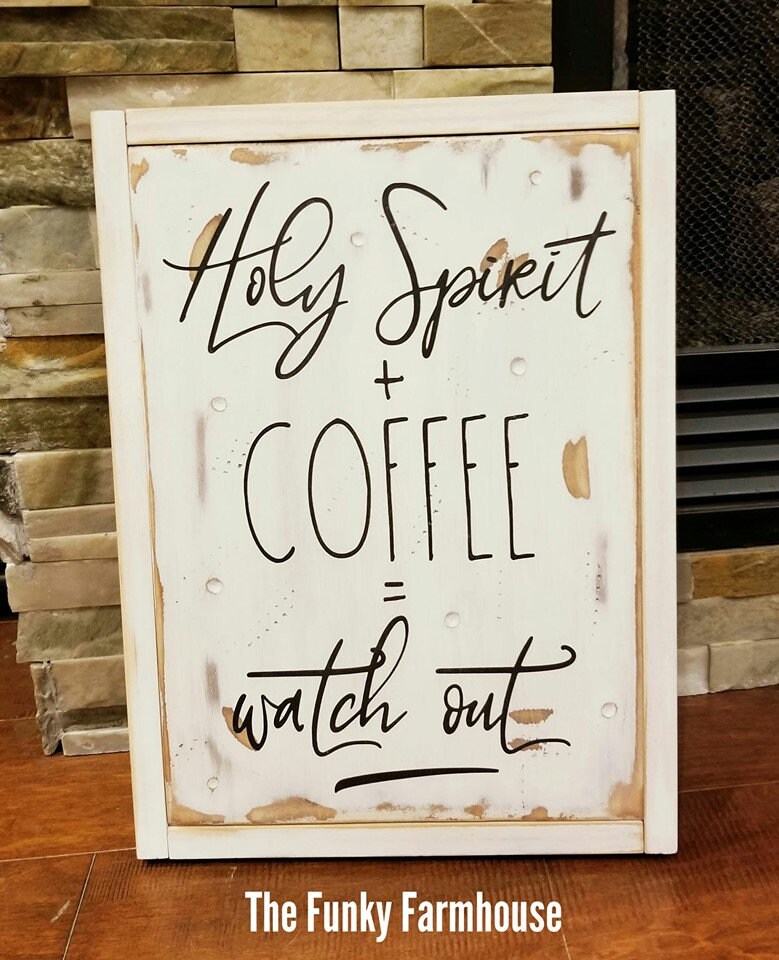 Holy Spirit
+
COFFEE
=
watch out
The Funky Farmhouse